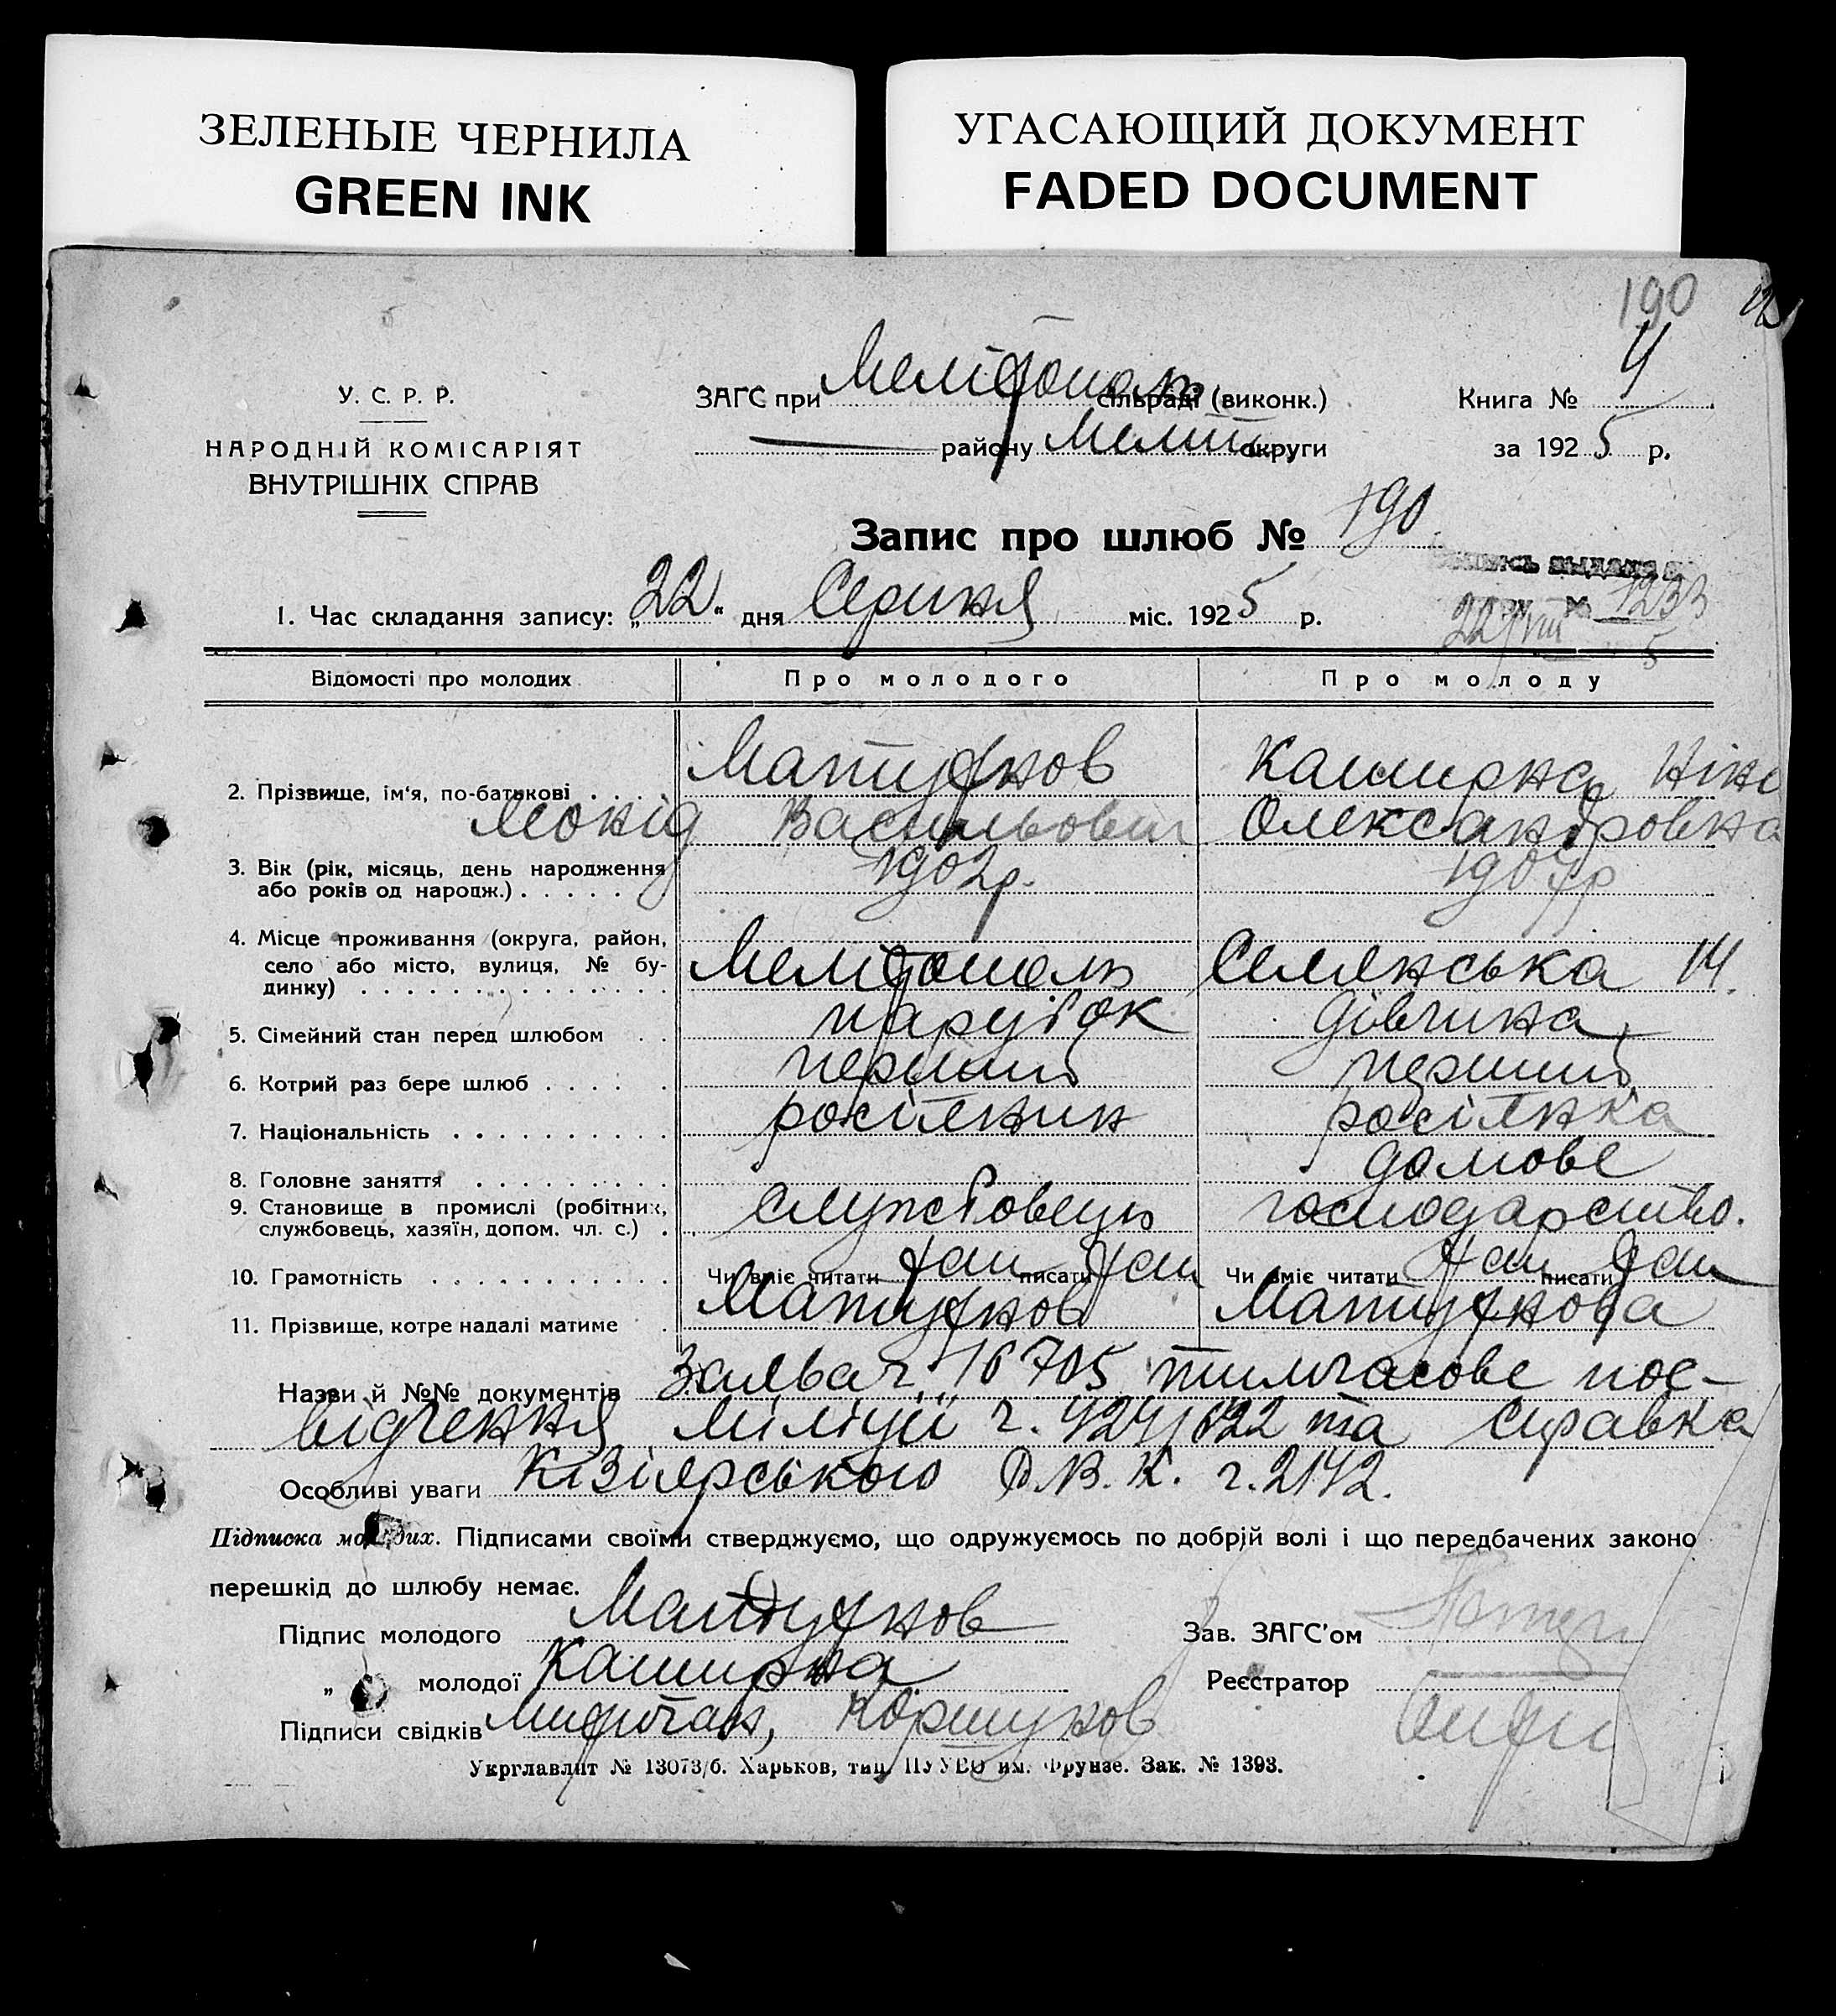 ЗЕЛЕНЫЕ ЧЕРНИЛА
GREEN INK
УГАСАЮЩИЙ ДОКУМЕНТ
FADED DOCUMENT
190
У. С. Р. Р.
НАРОДНІЙ КОМІСАРІЯТ
ВНУТРІШНІХ СПРАВ
ЗАГС при Мелітополь сільраді (виконк.)
району Меліт. округи
Книга № 4
за 1925 р.
Запис про шлюб № 190
1. Час складання запису: „22“ дня Серпня міс. 1925 р.
№ 1233
22/VIII 5
Відомості про молодих Про молодого Про молоду
2. Прізвище, ім'я, по-батькові Матюхнов Каширна Ніна
Леонід Васильович Олександровна
3. Вік (рік, місяць, день народження або років од народж.) 1902р. 1904р
4. Місце проживання (округа, район,
село або місто, вулиця, № бу-
динку) Мелітополь Селянська 14.
5. Сімейний стан перед шлюбом парубок дівчина
6. Котрий раз бере шлюб перший перший
7. Національність росіянин росіянка
8. Головне заняття домове
9. Становище в промислі (робітник,
службовець, хазяїн, допом. чл. с.) службовець господарство.
10. Грамотність Чи вміє читати так писати так Чи вміє читати так писати так
11. Прізвище, котре надалі матиме Матюхнов Матюхнова
Назви й №№ документів Заява ч. 16705 тимчасове пос-
відчення міліції ч. 424/622 та справка
Особливі уваги Кізіярського Р.В.К. ч. 2142.
Підписка молодих. Підписами своїми стверджуємо, що одружуємось по добрій волі і що передбачених законо
перешкід до шлюбу немає.
Підпис молодого Матюхнов
Зав. ЗАГС'ом
„ молодої Каширна
Реєстратор
Підписи свідків Коршунов
Укрглавліт № 13073/б. Харьков, тип. ПУУВО им. Фрунзе. Зак. № 1393.